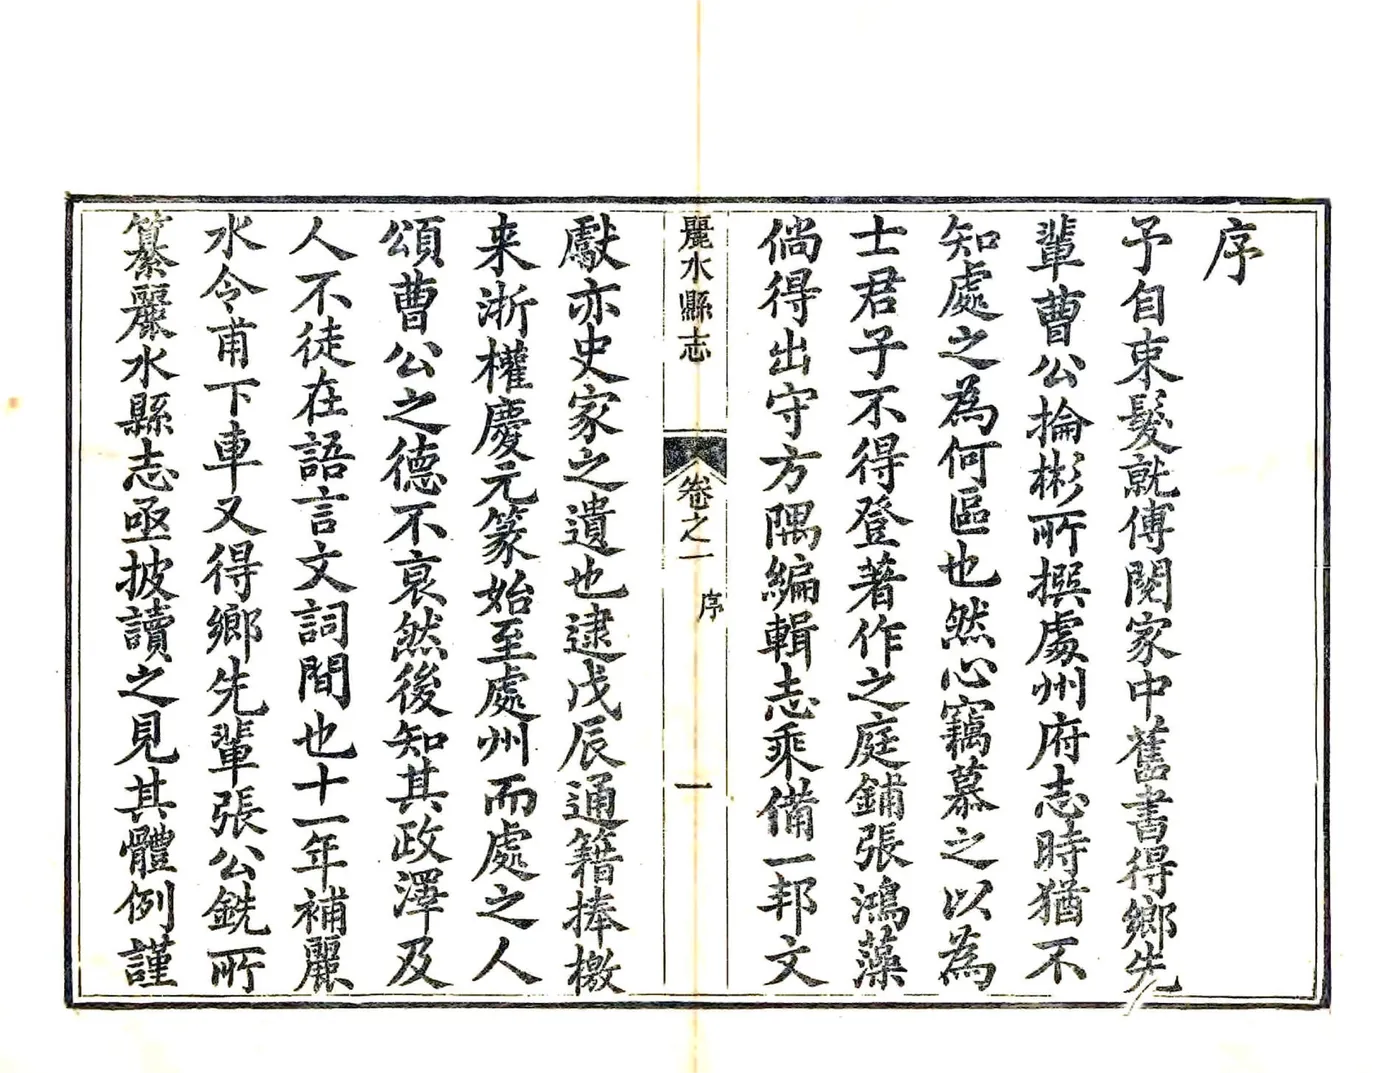 序
予自束髮就傅閱家中舊書得鄉先
輩曹公掄彬所撰處州府志時猶不
知處之為何區也然心竊慕之以為
士君子不得登著作之庭鋪張鴻藻
倘得出守方隅編輯志乘備一邦文
麗水縣志
卷之一
序
一
獻亦史家之遺也逮戊辰通籍捧檄
来浙權慶元篆始至處州而處之人
頌曹公之德不衰然後知其政澤及
人不徒在語言文詞間也十一年補麗
水令甫下車又得鄉先輩張公銑所
纂麗水縣志亟披讀之見其體例謹